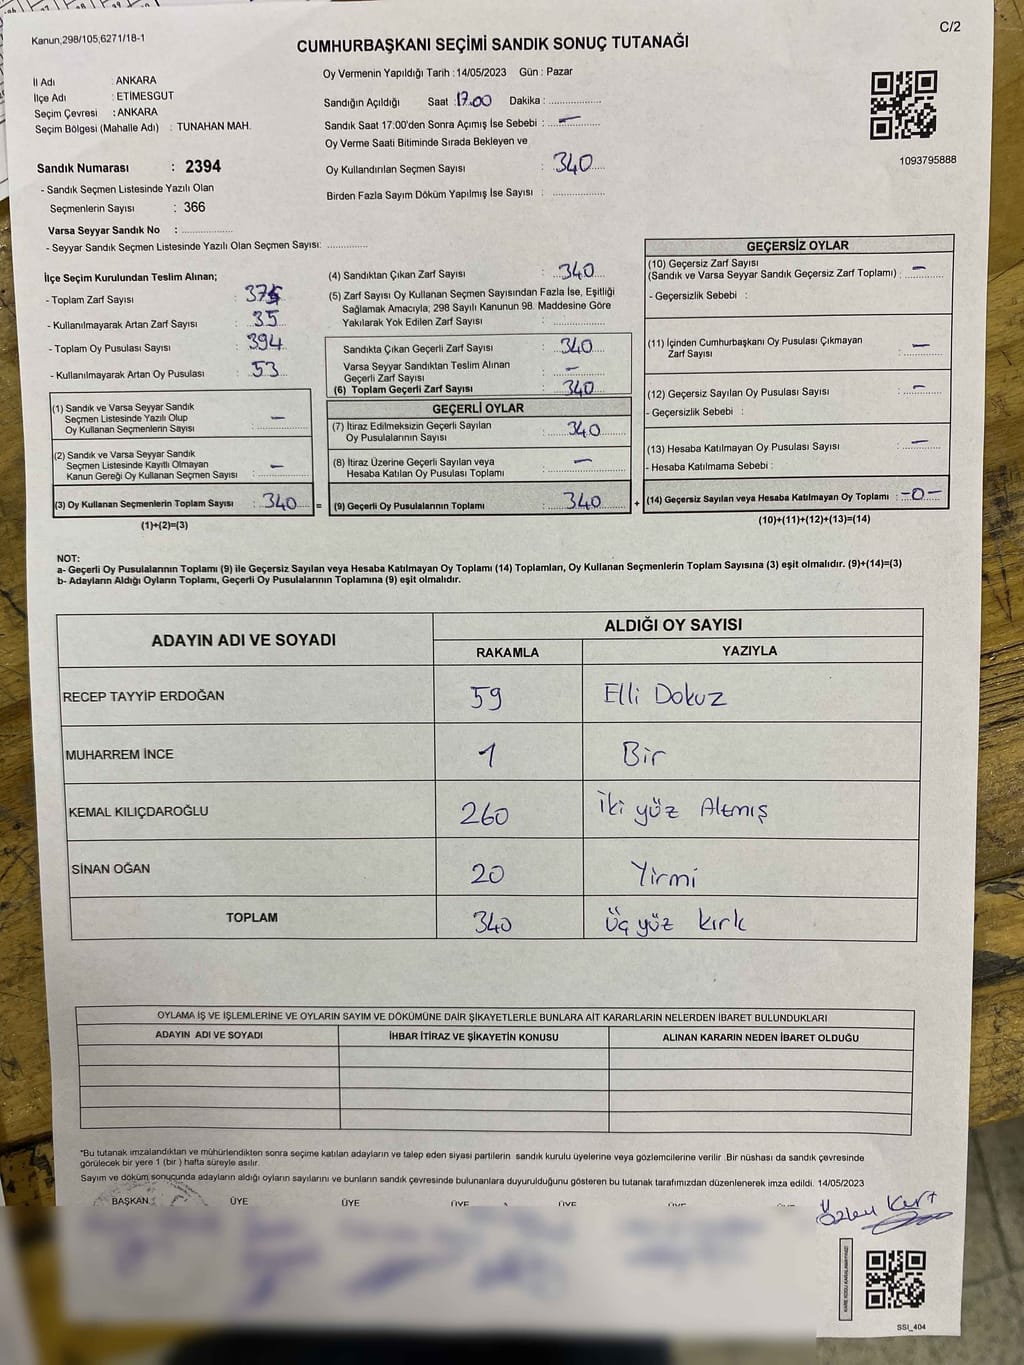 Kanun,298/105,6271/18-1
C/2
CUMHURBAŞKANI SEÇİMİ SANDIK SONUÇ TUTANAĞI
İl Adı : ANKARA
İlçe Adı : ETİMESGUT
Seçim Çevresi : ANKARA
Seçim Bölgesi (Mahalle Adı) : TUNAHAN MAH.
Sandık Numarası : 2394
- Sandık Seçmen Listesinde Yazılı Olan
Seçmenlerin Sayısı : 366
Varsa Seyyar Sandık No : ..............
- Seyyar Sandık Listesinde Yazılı Olan Seçmen Sayısı: ............
Oy Vermenin Yapıldığı Tarih : 14/05/2023 Gün : Pazar
Sandığın Açıldığı Saat : 17.00 Dakika : ..............
Sandık Saat 17:00'den Sonra Açımış İse Sebebi : —
Oy Verme Saati Bitiminde Sırada Bekleyen ve
Oy Kullandırılan Seçmen Sayısı : 340
Birden Fazla Sayım Döküm Yapılmış İse Sayısı : ..............
1093795888
İlçe Seçim Kurulundan Teslim Alınan;
- Toplam Zarf Sayısı : 375
- Kullanılmayarak Artan Zarf Sayısı : 35
- Toplam Oy Pusulası Sayısı : 394
- Kullanılmayarak Artan Oy Pusulası : 53
(1) Sandık ve Varsa Seyyar Sandık
Seçmen Listesinde Yazılı Olup
Oy Kullanan Seçmenlerin Sayısı : —
(2) Sandık ve Varsa Seyyar Sandık
Seçmen Listesinde Kayıtlı Olmayan
Kanun Gereği Oy Kullanan Seçmen Sayısı : —
(3) Oy Kullanan Seçmenlerin Toplam Sayısı : 340 =
(1)+(2)=(3)
(4) Sandıktan Çıkan Zarf Sayısı : 340
(5) Zarf Sayısı Oy Kullanan Seçmen Sayısından Fazla İse, Eşitliği
Sağlamak Amacıyla; 298 Sayılı Kanunun 98. Maddesine Göre
Yakılarak Yok Edilen Zarf Sayısı : ..............
Sandıkta Çıkan Geçerli Zarf Sayısı : 340
Varsa Seyyar Sandıktan Teslim Alınan
Geçerli Zarf Sayısı : —
(6) Toplam Geçerli Zarf Sayısı : 340
GEÇERLİ OYLAR
(7) İtiraz Edilmeksizin Geçerli Sayılan
Oy Pusulalarının Sayısı : 340
(8) İtiraz Üzerine Geçerli Sayılan veya
Hesaba Katılan Oy Pusulası Toplamı : —
(9) Geçerli Oy Pusulalarının Toplamı : 340 +
GEÇERSİZ OYLAR
(10) Geçersiz Zarf Sayısı
(Sandık ve Varsa Seyyar Sandık Geçersiz Zarf Toplamı) : —
- Geçersizlik Sebebi :
(11) İçinden Cumhurbaşkanı Oy Pusulası Çıkmayan
Zarf Sayısı : —
(12) Geçersiz Sayılan Oy Pusulası Sayısı : —
- Geçersizlik Sebebi :
(13) Hesaba Katılmayan Oy Pusulası Sayısı : —
- Hesaba Katılmama Sebebi :
(14) Geçersiz Sayılan veya Hesaba Katılmayan Oy Toplamı : -0-
(10)+(11)+(12)+(13)=(14)
NOT:
a- Geçerli Oy Pusulalarının Toplamı (9) ile Geçersiz Sayılan veya Hesaba Katılmayan Oy Toplamı (14) Toplamları, Oy Kullanan Seçmenlerin Toplam Sayısına (3) eşit olmalıdır. (9)+(14)=(3)
b- Adayların Aldığı Oyların Toplamı, Geçerli Oy Pusulalarının Toplamına (9) eşit olmalıdır.
ADAYIN ADI VE SOYADI ALDIĞI OY SAYISI
RAKAMLA YAZIYLA
RECEP TAYYİP ERDOĞAN 59 Elli Dokuz
MUHARREM İNCE 1 Bir
KEMAL KILIÇDAROĞLU 260 İki yüz Altmış
SİNAN OĞAN 20 Yirmi
TOPLAM 340 Üç yüz kırk
OYLAMA İŞ VE İŞLEMLERİNE VE OYLARIN SAYIM VE DÖKÜMÜNE DAİR ŞİKAYETLERLE BUNLARA AİT KARARLARIN NELERDEN İBARET BULUNDUKLARI
ADAYIN ADI VE SOYADI İHBAR İTİRAZ VE ŞİKAYETİN KONUSU ALINAN KARARIN NEDEN İBARET OLDUĞU
*Bu tutanak imzalandıktan ve mühürlendikten sonra seçime katılan adayların ve talep eden siyasi partilerin sandık kurulu üyelerine veya gözlemcilerine verilir .Bir nüshası da sandık çevresinde
görülecek bir yere 1 (bir ) hafta süreyle asılır.
Sayım ve döküm sonucunda adayların aldığı oyların sayılarını ve bunların sandık çevresinde bulunanlara duyurulduğunu gösteren bu tutanak tarafımızdan düzenlenerek imza edildi. 14/05/2023
BAŞKAN ÜYE ÜYE ÜYE ÜYE ÜYE
SSI_404